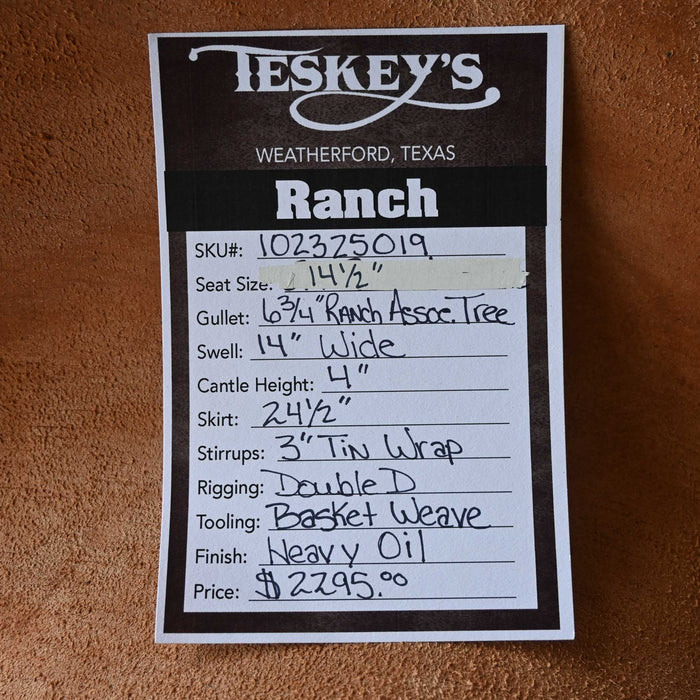 TESKEY'S
WEATHERFORD, TEXAS
Ranch
SKU#: 102325019
Seat Size: 14 1/2"
Gullet: 6 3/4" Ranch Assoc. Tree
Swell: 14" Wide
Cantle Height: 4"
Skirt: 24 1/2"
Stirrups: 3" Tin Wrap
Rigging: Double D
Tooling: Basket Weave
Finish: Heavy Oil
Price: $2295.00